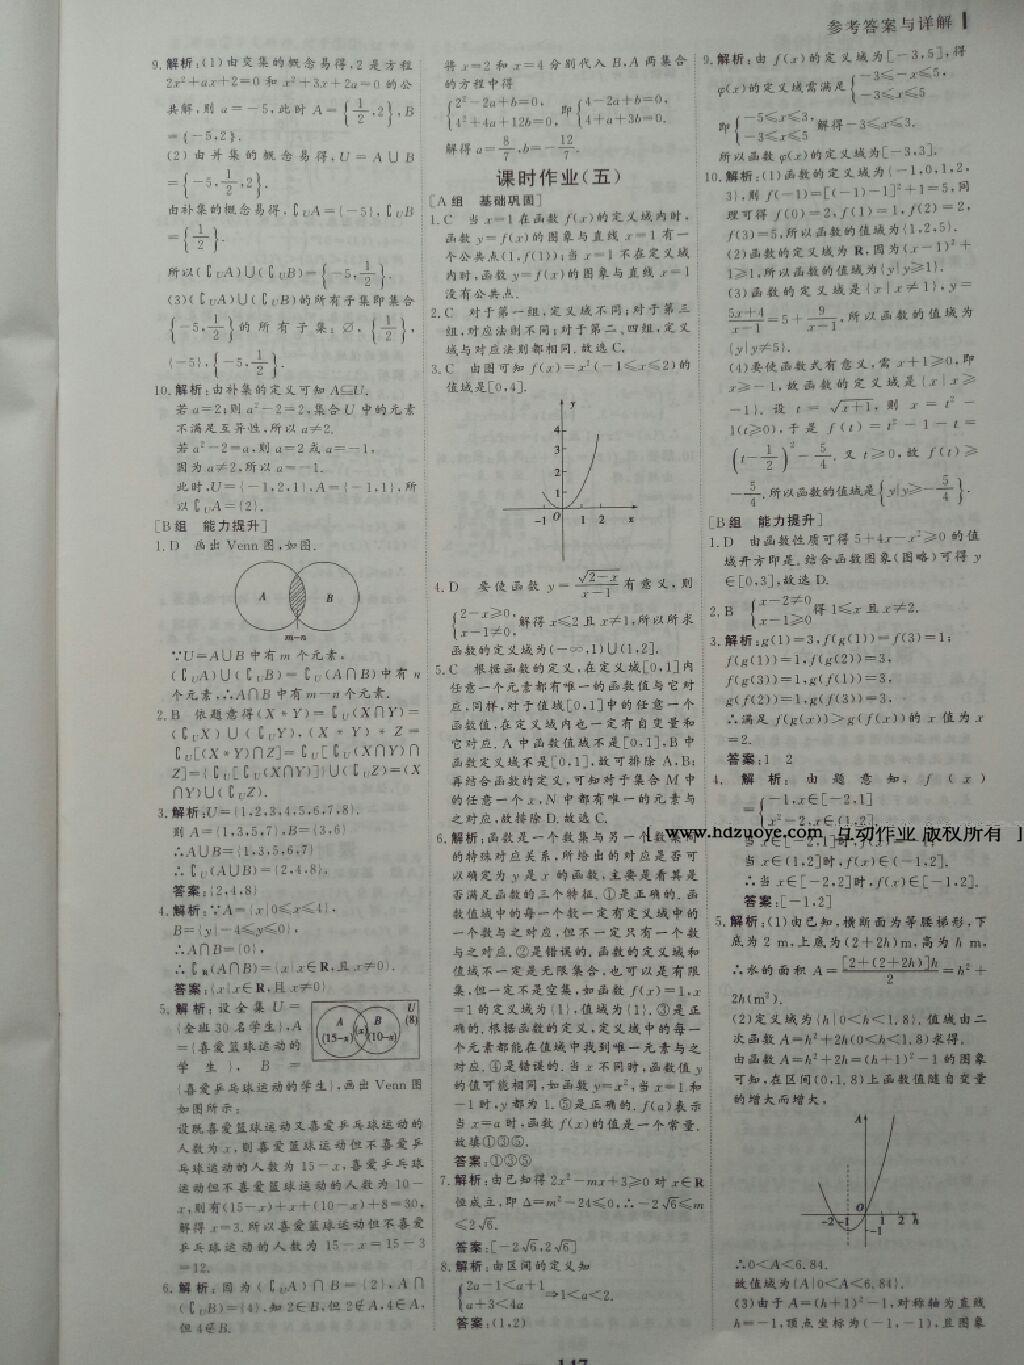 参考答案与详解
9.解析:(1)由交集的概念易得,2是方程
2x²+ax+2=0和x²+3x+2a=0的公
共解,则a=-5,此时A={1/2,2},B
={-5,2}.
(2)由并集的概念易得,U=A∪B
={-5,1/2,2}.
由补集的概念易得,∁UA={-5},∁UB
={1/2}.
所以(∁UA)∪(∁UB)={-5,1/2}.
(3)(∁UA)∪(∁UB)的所有子集即集合
{-5,1/2}的所有子集:∅,{1/2},
{-5},{-5,1/2}.
10.解析:由补集的定义可知A⊆U.
若a=2;则a²-2=2,集合U中的元素
不满足互异性,所以a≠2.
若a²-2=a,则a=2或a=-1,
因为a≠2,所以a=-1.
此时,U={-1,2,1},A={-1,1},所
以∁UA={2}.
[B组 能力提升]
1.D 画出Venn图,如图.
A B
m-n
∵U=A∪B中有m个元素,
(∁UA)∪(∁UB)=∁U(A∩B)中有n
个元素,∴A∩B中有m-n个元素.
2.B 依题意得(X*Y)=∁U(X∩Y)=
(∁UX)∪(∁UY),(X*Y)*Z=
∁U[(X*Y)∩Z]=∁U[∁U(X∩Y)∩
Z]={∁U[∁U(X∩Y)]}∪(∁UZ)=(X
∩Y)∪(∁UZ).
3.解析:U={1,2,3,4,5,6,7,8},
则A={1,3,5,7},B={3,6}
∴A∪B={1,3,5,6,7}
∴∁U(A∪B)={2,4,8}.
答案:{2,4,8}
4.解析:∵A={x|0≤x≤4},
B={y|-4≤y≤0},
∴A∩B={0},
∴∁R(A∩B)={x|x∈R,且x≠0}.
答案:{x|x∈R,且x≠0}
5.解析:设全集U=
{全班30名学生},A
={喜爱篮球运动的
学生},B=
A B U
(15-x) (x) (10-x) (8)
{喜爱乒乓球运动的学生},画出Venn图
如图所示:
设既喜爱篮球运动又喜爱乒乓球运动的
人数为x,则喜爱篮球运动但不喜爱乒
乓球运动的人数为15-x,喜爱乒乓球
运动但不喜爱篮球运动的人数为10-
x,则有(15-x)+x+(10-x)+8=30,
解得x=3.所以喜爱篮球运动但不喜爱
乒乓球运动的人数为15-x=15-3
=12.
6.解析:因为(∁UA)∩B={2},A∩
(∁UB)={4},知2∈B,但2∉A,4∈A,
但4∉B.
将x=2和x=4分别代入B,A两集合
的方程中得
{2²-2a+b=0, 即{4-2a+b=0,
4²+4a+12b=0, 4+a+3b=0.
解得a=8/7,b=-12/7.
课时作业(五)
[A组 基础巩固]
1.C 当x=1在函数f(x)的定义域内时,
函数y=f(x)的图象与直线x=1有一
个公共点(1,f(1));当x=1不在定义域
内时,函数y=f(x)的图象与直线x=1
没有公共点.
2.C 对于第一组,定义域不同;对于第三
组,对应法则不同;对于第二、四组,定义
域与对应法则都相同.故选C.
3.C 由图可知f(x)=x²(-1≤x≤2)的
值域是[0,4].
y
4
3
2
1
-1 O 1 2 x
4.D 要使函数y=√(2-x)/(x-1)有意义,则
{2-x≥0, 解得x≤2且x≠1,所以所求
x-1≠0,
函数的定义域为(-∞,1)∪(1,2].
5.C 根据函数的定义,在定义域[0,1]内
任意一个元素都有唯一的函数值与它对
应,同样,对于值域[0,1]中的任意一个
函数值,在定义域内也一定有自变量和
它对应.A中函数值域不是[0,1],B中
函数定义域不是[0,1],故可排除A,B;
再结合函数的定义,可知对于集合M中
的任意一个x,N中都有唯一的元素与
之对应,故排除D.故选C.
6.解析:函数是一个数集与另一个数集间
的特殊对应关系,所给出的对应是否可
以确定为y是x的函数,主要是看其是
否满足函数的三个特征.①是正确的.函
数值域中的每一个数一定有定义域中的
一个数与之对应,但不一定只有一个数
与之对应.②是错误的.函数的定义域和
值域不一定是无限集合,也可以是有限
集,但一定不是空集,如函数f(x)=1,x
=1的定义域为{1},值域为{1}.③是正
确的.根据函数的定义,定义域中的每一
个元素都能在值域中找到唯一元素与之
对应.④是错误的.当x不同时,函数值y
的值可能相同,如函数y=x²,当x=1和
-1时,y都为1.⑤是正确的.f(a)表示
当x=a时,函数f(x)的值是一个常量.
故填①③⑤.
答案:①③⑤
7.解析:由已知得2x²-mx+3≥0对x∈R
恒成立,即Δ=m²-24≤0,∴-2√6≤m
≤2√6.
答案:[-2√6,2√6]
8.解析:由区间的定义知
{2a-1<a+1 ⇒1<a<2.
a+3<4a
答案:(1,2)
9.解析:由f(x)的定义域为[-3,5],得
φ(x)的定义域需满足{-3≤-x≤5,
-3≤x≤5
即{-5≤x≤3, 解得-3≤x≤3.
-3≤x≤5
所以函数φ(x)的定义域为[-3,3].
10.解析:(1)函数的定义域为{-1,0,1,2,
3},则f(-1)=[(-1)-1]²+1=5,同
理可得f(0)=2,f(1)=1,f(2)=2,
f(3)=5,所以函数的值域为{1,2,5}.
(2)函数的定义域为R,因为(x-1)²+
1≥1,所以函数的值域为{y|y≥1}.
(3)函数的定义域是{x|x≠1},y=
5x+4/x-1=5+9/x-1,所以函数的值域为
{y|y≠5}.
(4)要使函数式有意义,需x+1≥0,即
x≥-1,故函数的定义域是{x|x≥
-1}.设t=√x+1,则x=t²-
1(t≥0),于是f(t)=t²-1-t=
(t-1/2)²-5/4.又t≥0,故f(t)≥
-5/4.所以函数的值域是{y|y≥-5/4}.
[B组 能力提升]
1.D 由函数性质可得5+4x-x²≥0的值
域开方即是.结合函数图象(图略)可得y
∈[0,3],故选D.
2.B {x-2≠0 得1≤x且x≠2.
x-1≥0
3.解析:g(1)=3,f(g(1))=f(3)=1;
f(g(1))=1,f(g(2))=3,
f(g(3))=1,g(f(1))=3,
g(f(2))=1,g(f(3))=3,
∴满足f(g(x))>g(f(x))的x值为x
=2.
答案:1 2
4.解析:由题意知,f(x)
={-1,x∈[-2,1]
x²-2,x∈(1,2],
[ www.hdzuoye.com 互动作业 版权所有 ]
当x∈[-2,1]时,f(x)=
当x∈(1,2]时,f(x)∈(-1,2].
∴当x∈[-2,2]时,f(x)∈[-1,2].
答案:[-1,2]
5.解析:(1)由已知,横断面为等腰梯形,下
底为2 m,上底为(2+2h)m,高为h m,
∴水的面积A=[2+(2+2h)]h/2=h²+
2h(m²).
(2)定义域为{h|0<h<1.8}.值域由二
次函数A=h²+2h(0<h<1.8)求得.
由函数A=h²+2h=(h+1)²-1的图象
可知,在区间(0,1.8)上函数值随自变量
的增大而增大,
A
-2 -1 O 1 2 h
-1
∴0<A<6.84.
故值域为{A|0<A<6.84}.
(3)由于A=(h+1)²-1,对称轴为直线
h=-1,顶点坐标为(-1,-1),且图象
147